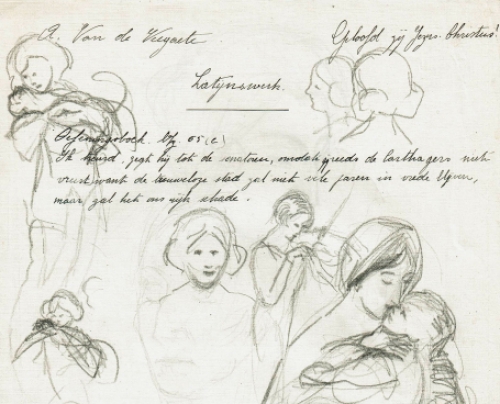 A. Van de Veegaete.
Geloofd zij Jezus Christus!
Latijnswerk.
Oefeningsboek blz 65 (c)
Ik zegt hij tot de senatoren, omdat de Carthagers niet
want de trouweloze stad zal niet vele jaren in vrede blijven,
maar zal ons rijk schade.